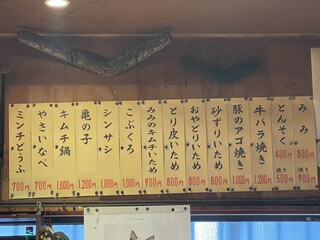 みみ 800円 焼き 900円
とんそく 400円 焼き 500円
牛バラ焼き 1,200円
豚のアゴ焼き 1,000円
砂ずりいため 800円
おやどりいため 800円
とり皮いため 800円
みみのキムチいため 900円
こぶくろ 1,000円
シンサシ 1,000円
亀の子 1,200円
キムチ鍋 1,000円
やさいなべ 700円
ミンチどうふ 700円